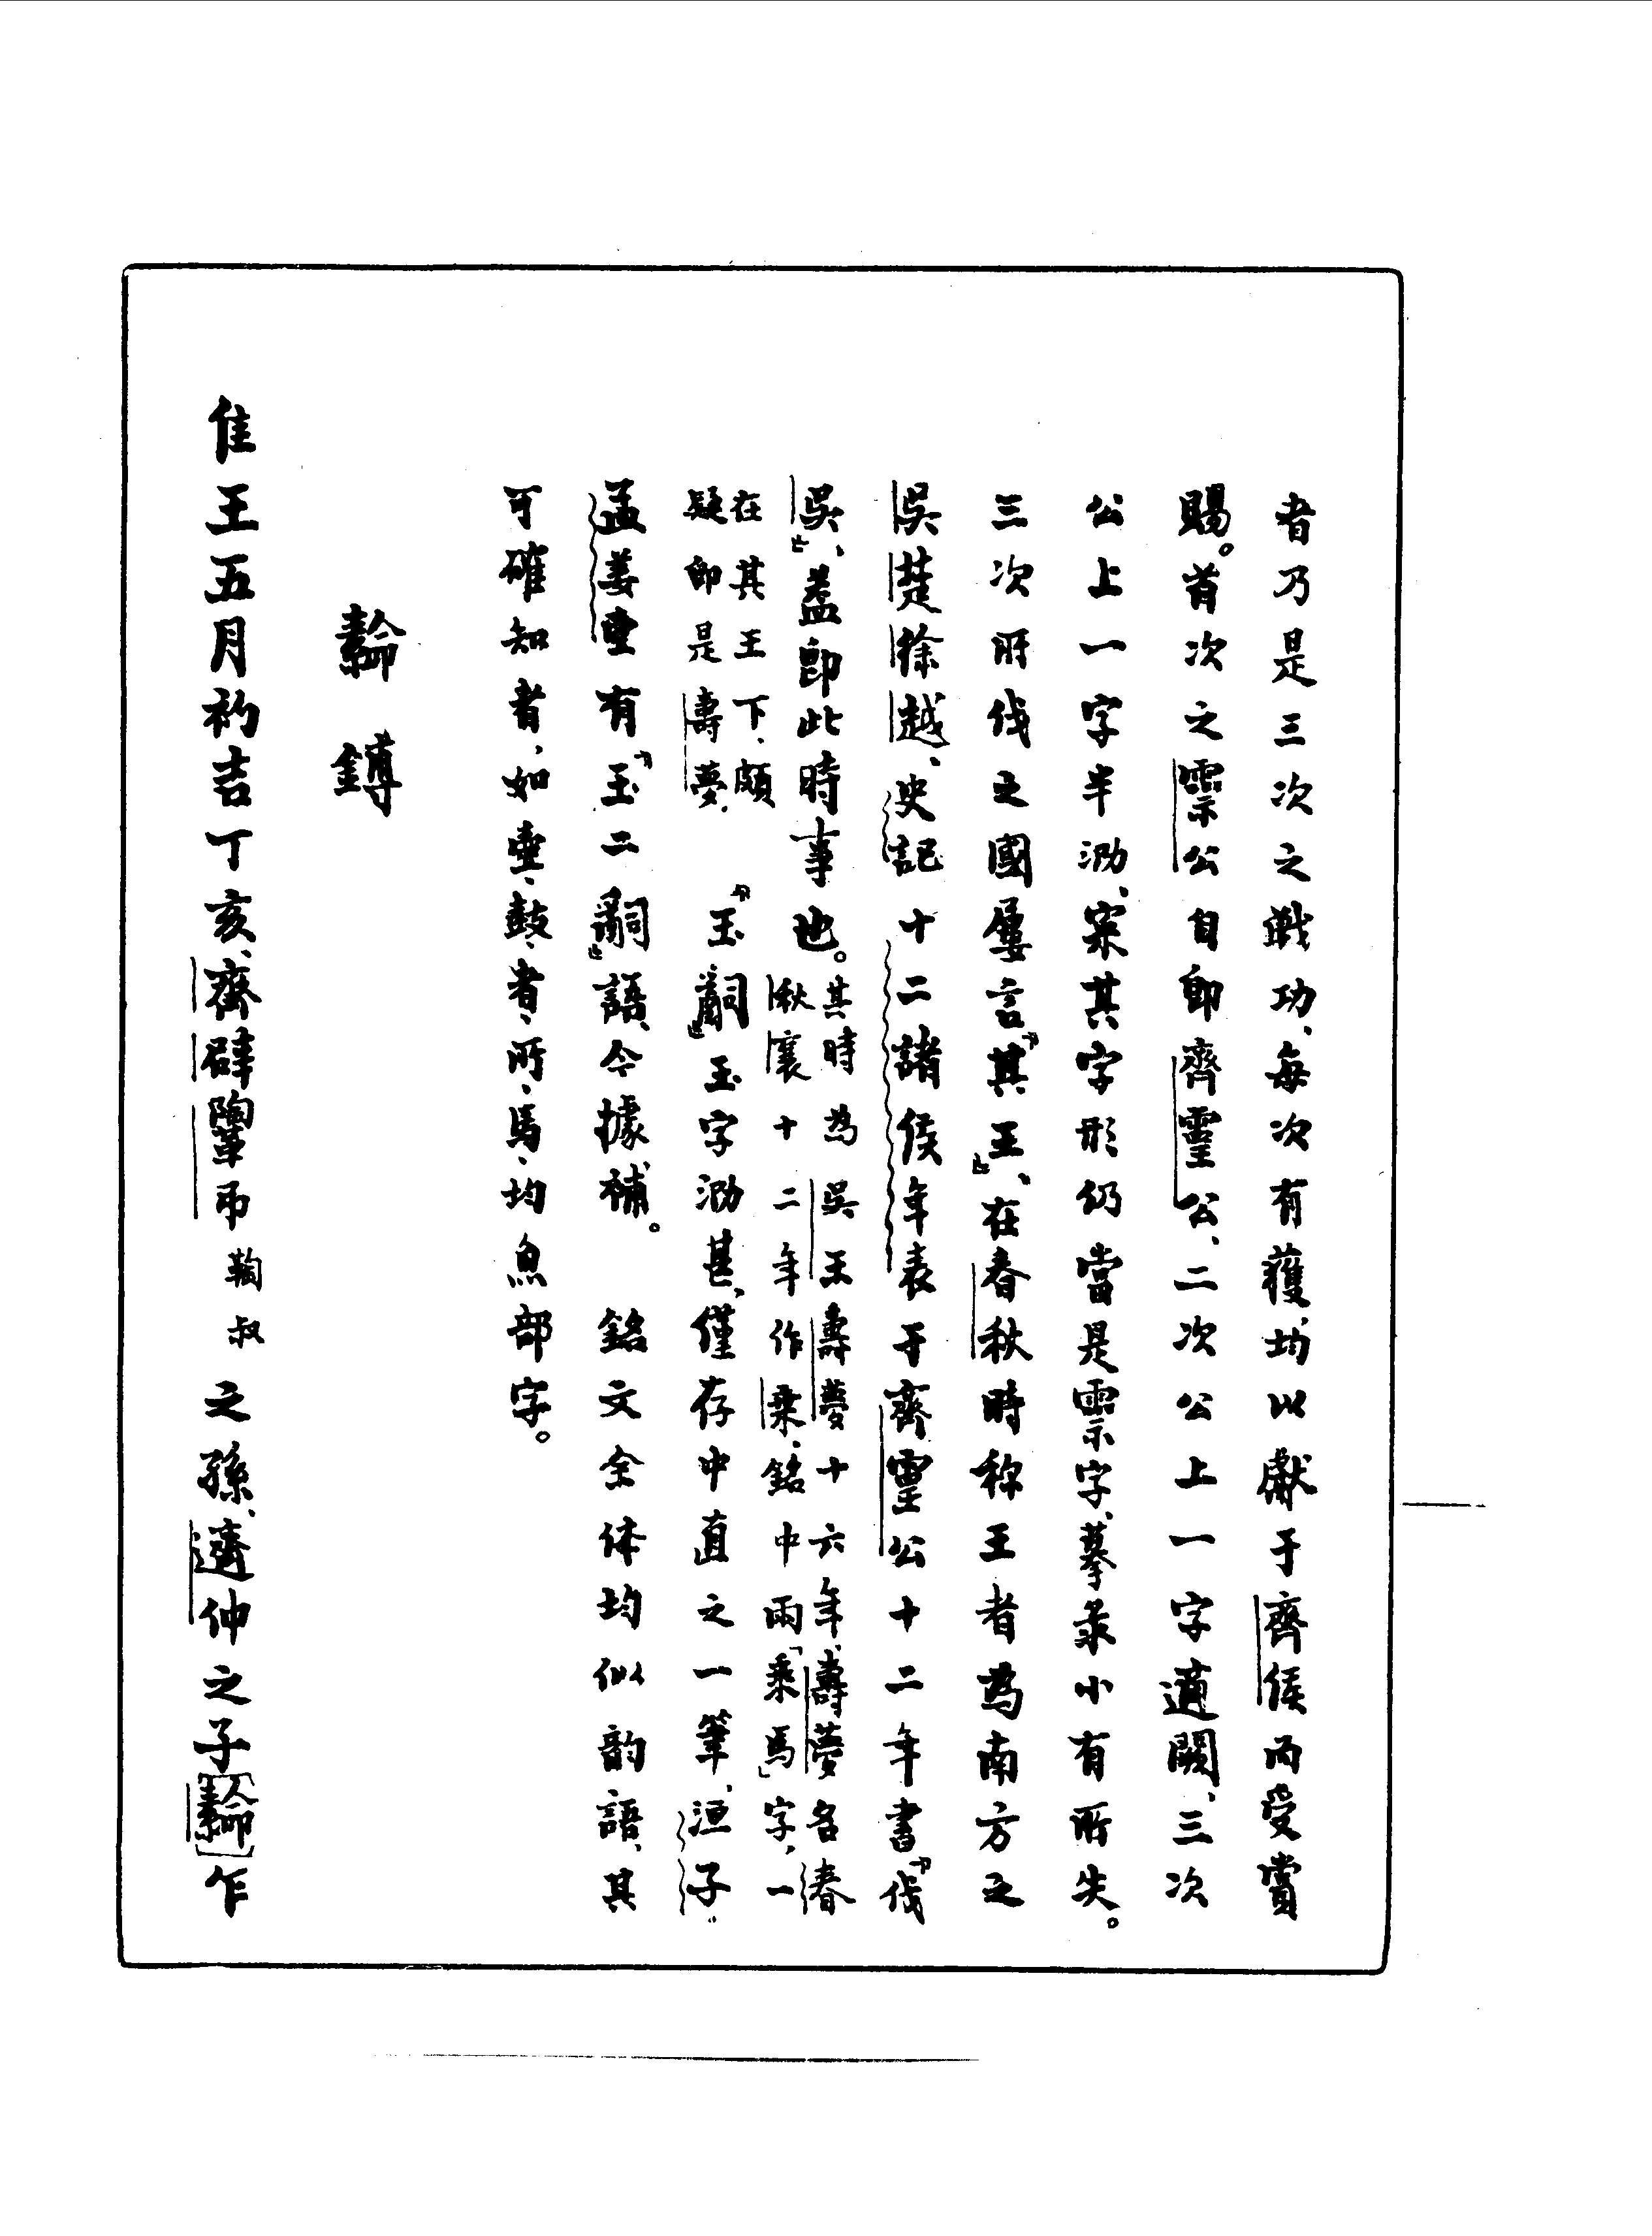 者乃是三次之戰功、每次有獲、均以獻于齊侯而受賞
賜。首次之霝公自即齊靈公、二次公上一字適闕、三次
公上一字半泐、案其字形仍當是霝字、摹录小有所失。
三次所伐之國屢言「其王」、在春秋時称王者為南方之
吳楚徐越、史記十二諸侯年表于齊靈公十二年書「伐
吳」、蓋即此時事也。其時為吳王壽夢十六年、壽夢名春
秋襄十二年作乘、銘中兩「乘馬」字、一
在其王下、頗
疑即是壽夢。「玉嗣」玉字泐甚、僅存中直之一筆、洹子
孟姜壺有「玉二嗣」語、今據補。銘文余体均似韵語、其
可確知者、如壺、鼓、者、所、馬、均魚部字。
鎛
隹王五月初吉丁亥、齊辟鞏弔鞫叔之孫、仲之子乍